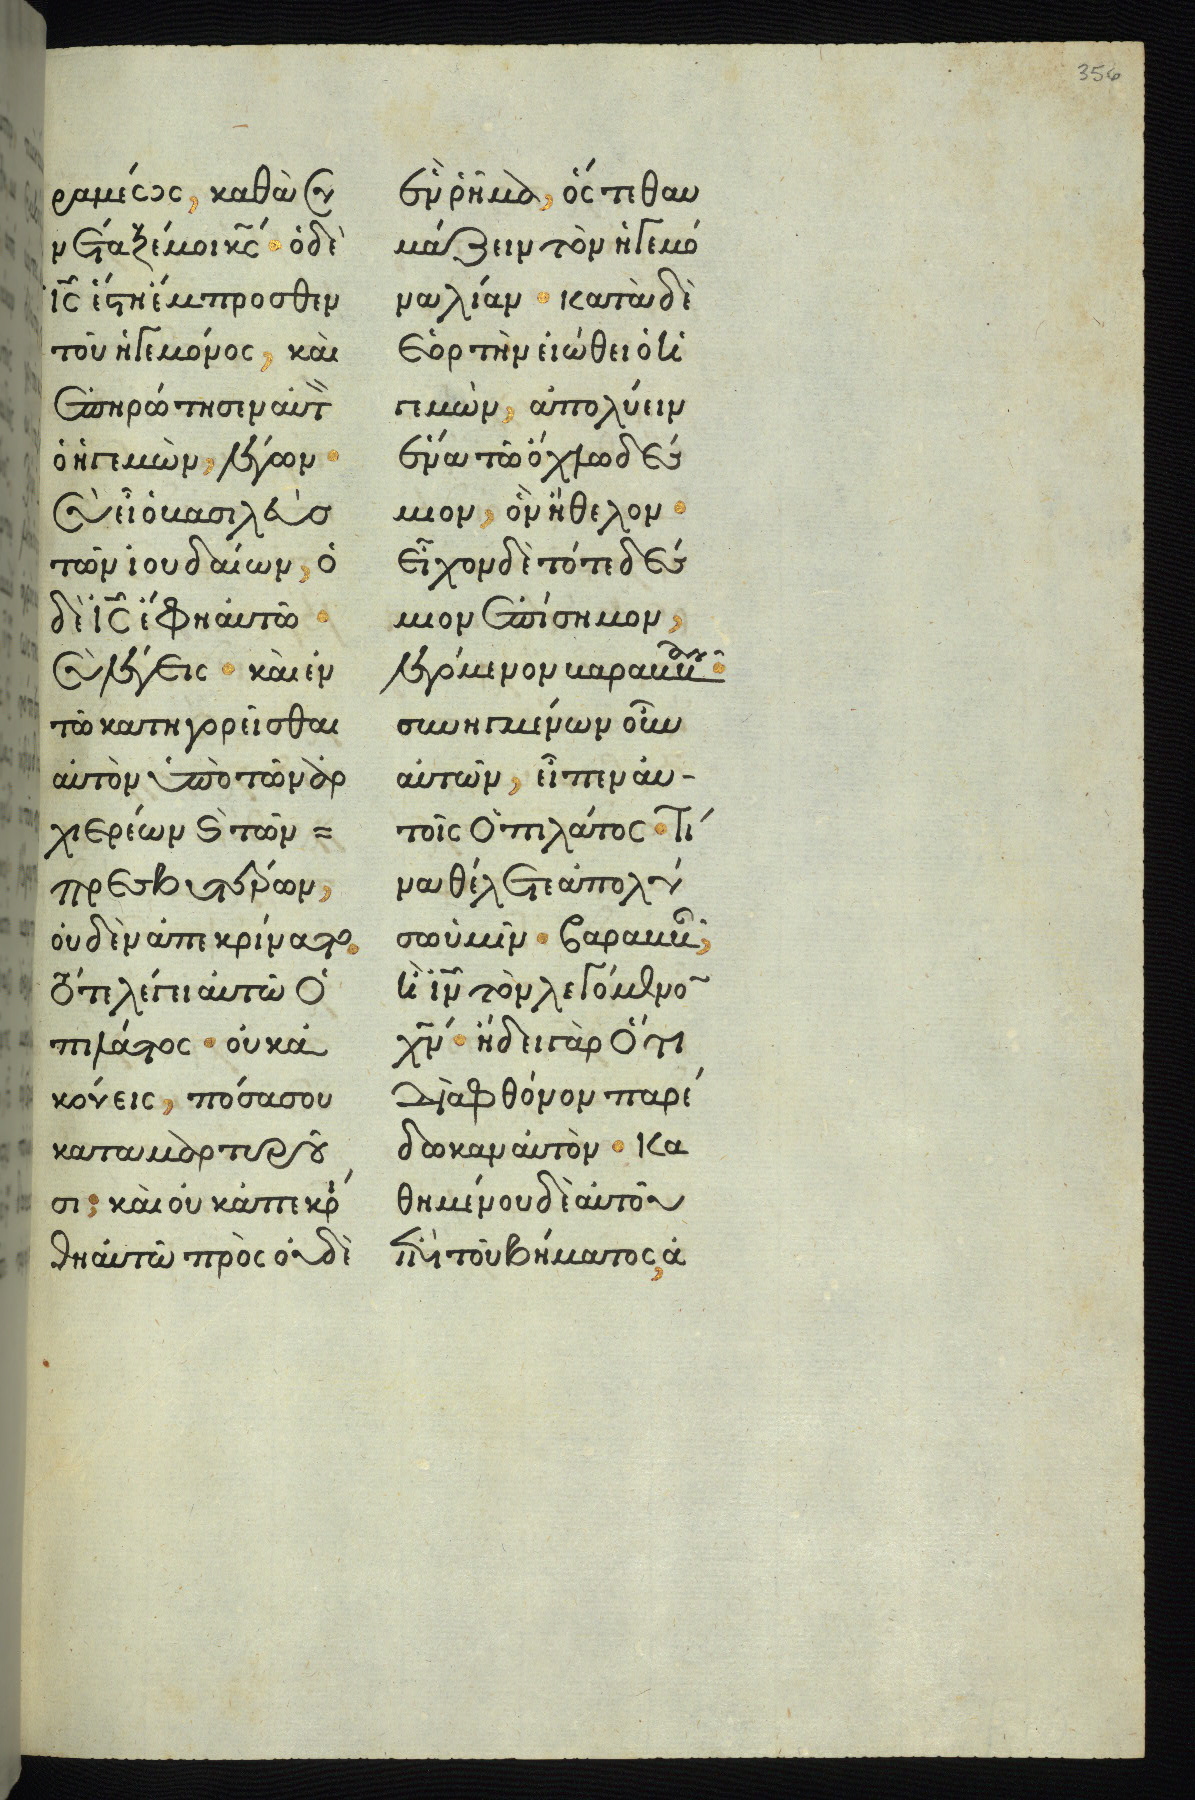 356
ραμέως, καθὰ συ
νέταξέ μοι κς̄· ὁ δὲ
ις̄ ἔστη ἔμπροσθεν
τοῦ ἡγεμόνος, καὶ
ἐπηρώτησεν αὐτ
ὁ ἡγεμὼν, λέγων·
σὺ εἶ ὁ βασιλεὺσ
τῶν ἰουδαίων, ὁ
δὲ ις̄ ἔφη αὐτῶ·
σὺ λέγεις· καὶ ἐν
τῶ κατηγορεῖσθαι
αὐτὸν ὑπὸ τῶν ἀρ
χιερέων καὶ τῶν =
πρεσβυτέρων,
οὐδὲν ἀπεκρίνατο.
τότε λέγει αὐτῶ ὁ
πιλάτος· οὐκ ἀ
κούεις, πόσα σου
καταμαρτυροῦ
σι; καὶ οὐκ ἀπεκρί
θη αὐτῶ πρὸς οὐδὲ
ἓν ῥῆμα, ὥστε θαυ
μάζειν τὸν ἡγεμό
να λίαν· κατὰ δὲ
ἑορτὴν εἰώθει ὁ ἡ
γεμὼν, ἀπολύειν
ἕνα τῶ ὄχλω δέσ
μιον, ὃν ἤθελον·
εἶχον δὲ τότε δέσ
μιον ἐπίσημον,
λεγόμενον βαραββᾶν·
συνηγμένων οὖν
αὐτῶν, εἶπεν αὐ-
τοῖς ὁ πιλάτος· Τί
να θέλετε ἀπολύ
σω ὑμῖν· βαραββᾶν;
ἢ ιν̄ τὸν λεγόμενον
χν̄· ἤδει γὰρ ὅτι
διὰ φθόνον παρέ
δωκαν αὐτὸν· Κα
θημένου δὲ αὐτοῦ
ἐπὶ τοῦ βήματος, ἀ